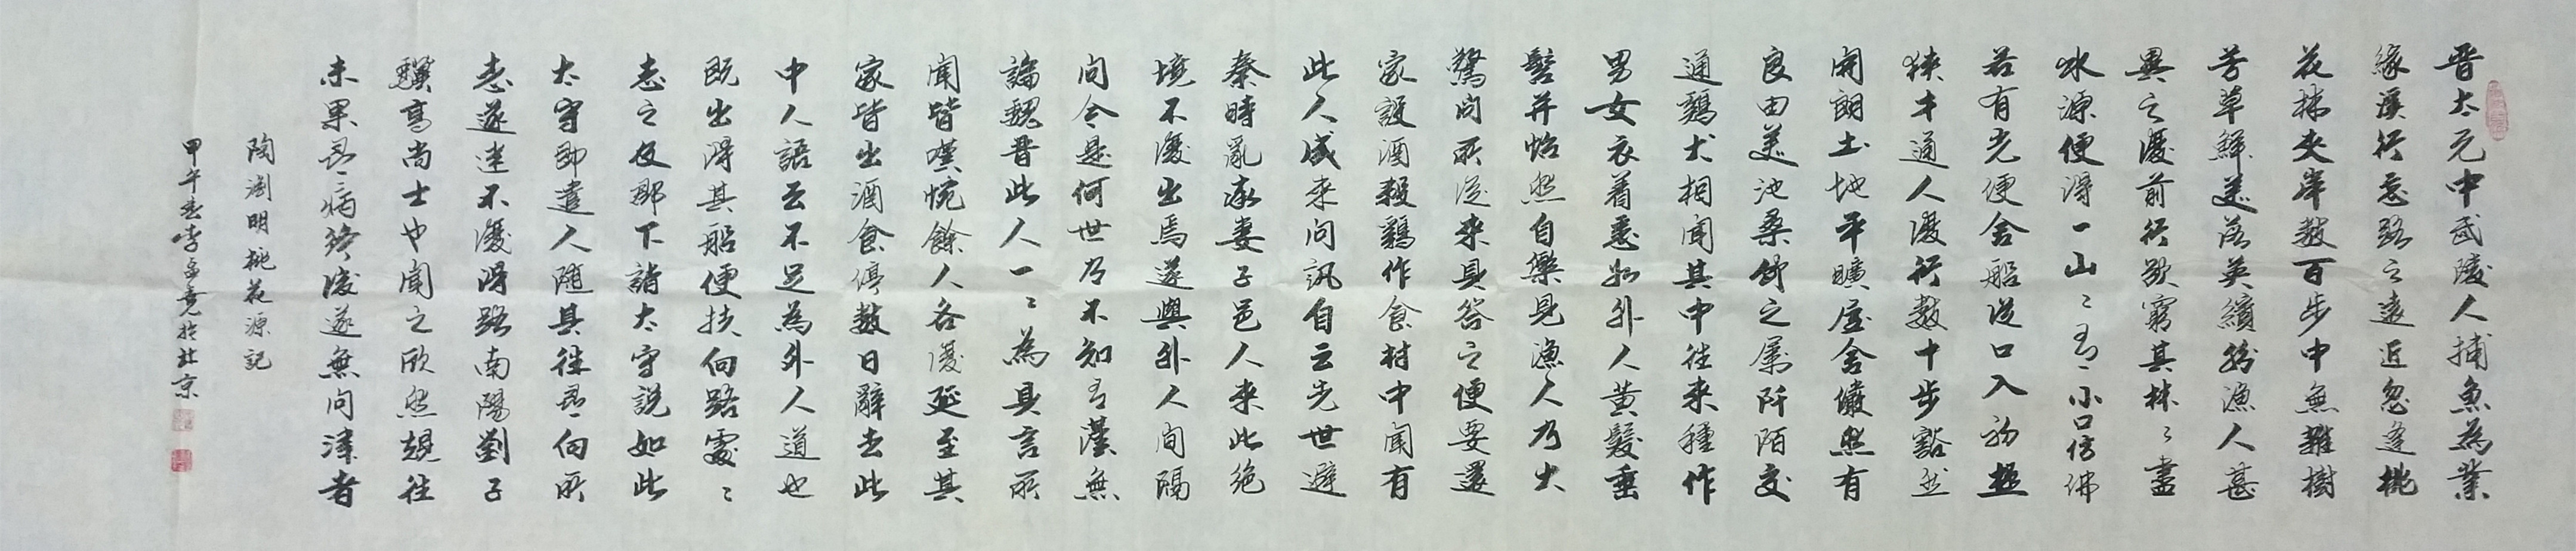 晋太元中武陵人捕魚為業
緣溪行忘路之遠近忽逢桃
花林夾岸數百步中無雜樹
芳草鮮美落英繽紛漁人甚
異之復前行欲窮其林〻盡
水源便得一山〻有小口仿佛
若有光便舍船從口入初極
狹才通人復行數十步豁然
開朗土地平曠屋舍儼然有
良田美池桑竹之屬阡陌交
通鷄犬相聞其中往来種作
男女衣着悉如外人黄髮垂
髫并怡然自樂見漁人乃大
驚問所從来具答之便要還
家設酒殺鷄作食村中聞有
此人咸来問訊自云先世避
秦時亂率妻子邑人来此絶
境不復出焉遂與外人間隔
問今是何世乃不知有漢無
論魏晋此人一〻為具言所
聞皆嘆惋餘人各復延至其
家皆出酒食停數日辭去此
中人語云不足為外人道也
既出得其船便扶向路處〻
志之及郡下詣太守説如此
太守即遣人隨其往尋向所
志遂迷不復得路南陽劉子
驥高尚士也聞之欣然規往
未果尋病終後遂無問津者
陶淵明桃花源記
甲午春李於北京